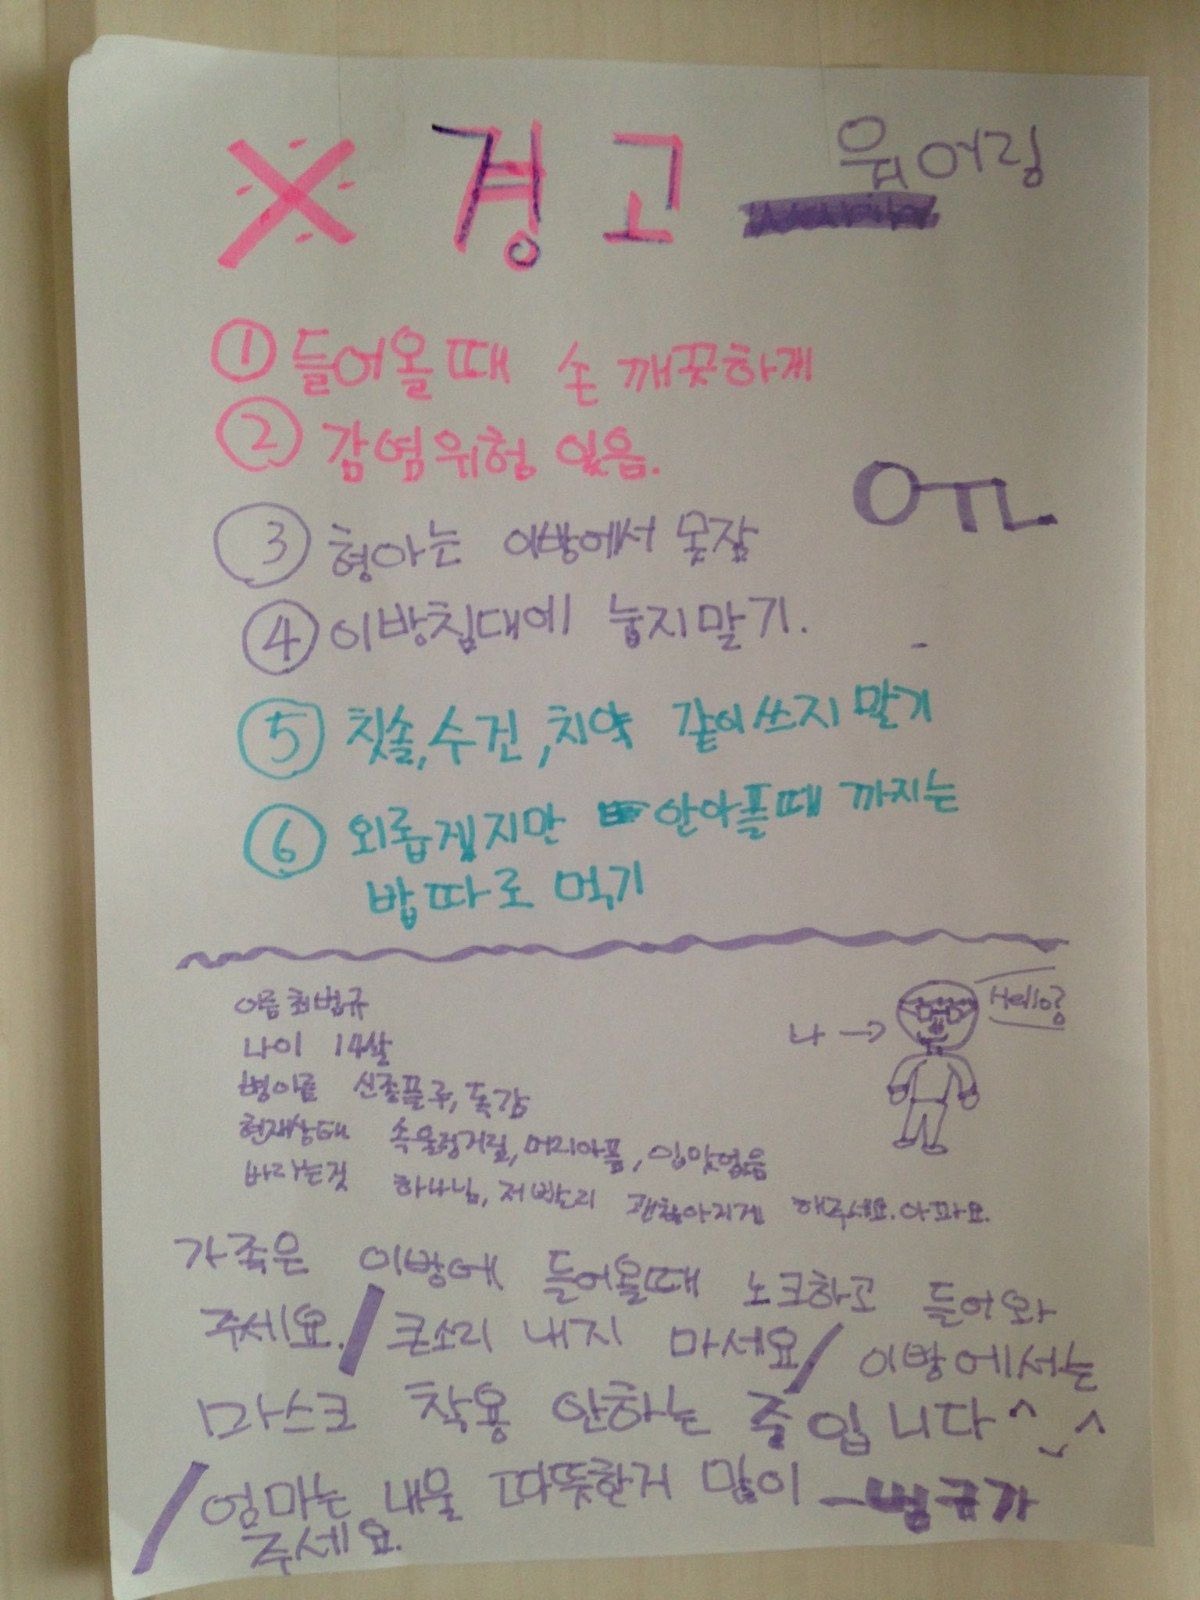 ※ 경고 워어링
① 들어올때 손 깨끗하게
② 감염위험 있음.
OTL
③ 형아는 이방에서 못잠
④ 이방침대에 눕지말기.
⑤ 칫솔,수건,치약 같이쓰지말기
⑥ 외롭겠지만 안아플때 까지는
밥따로 먹기
이름 최범규
나이 14살
병이름 신종플루, 독감
현재상태 속울렁거림, 머리아픔, 입맛없음
바라는것 하나님, 저 빨리 괜찮아지게 해주세요. 아파요.
나 → Hello?
가족은 이방에 들어올때 노크하고 들어와
주세요. / 큰소리 내지 마세요 / 이방에서는
마스크 착용 안하는 중입니다 ^‿^
/ 엄마는 내물 따뜻한거 많이 -범규가
주세요.